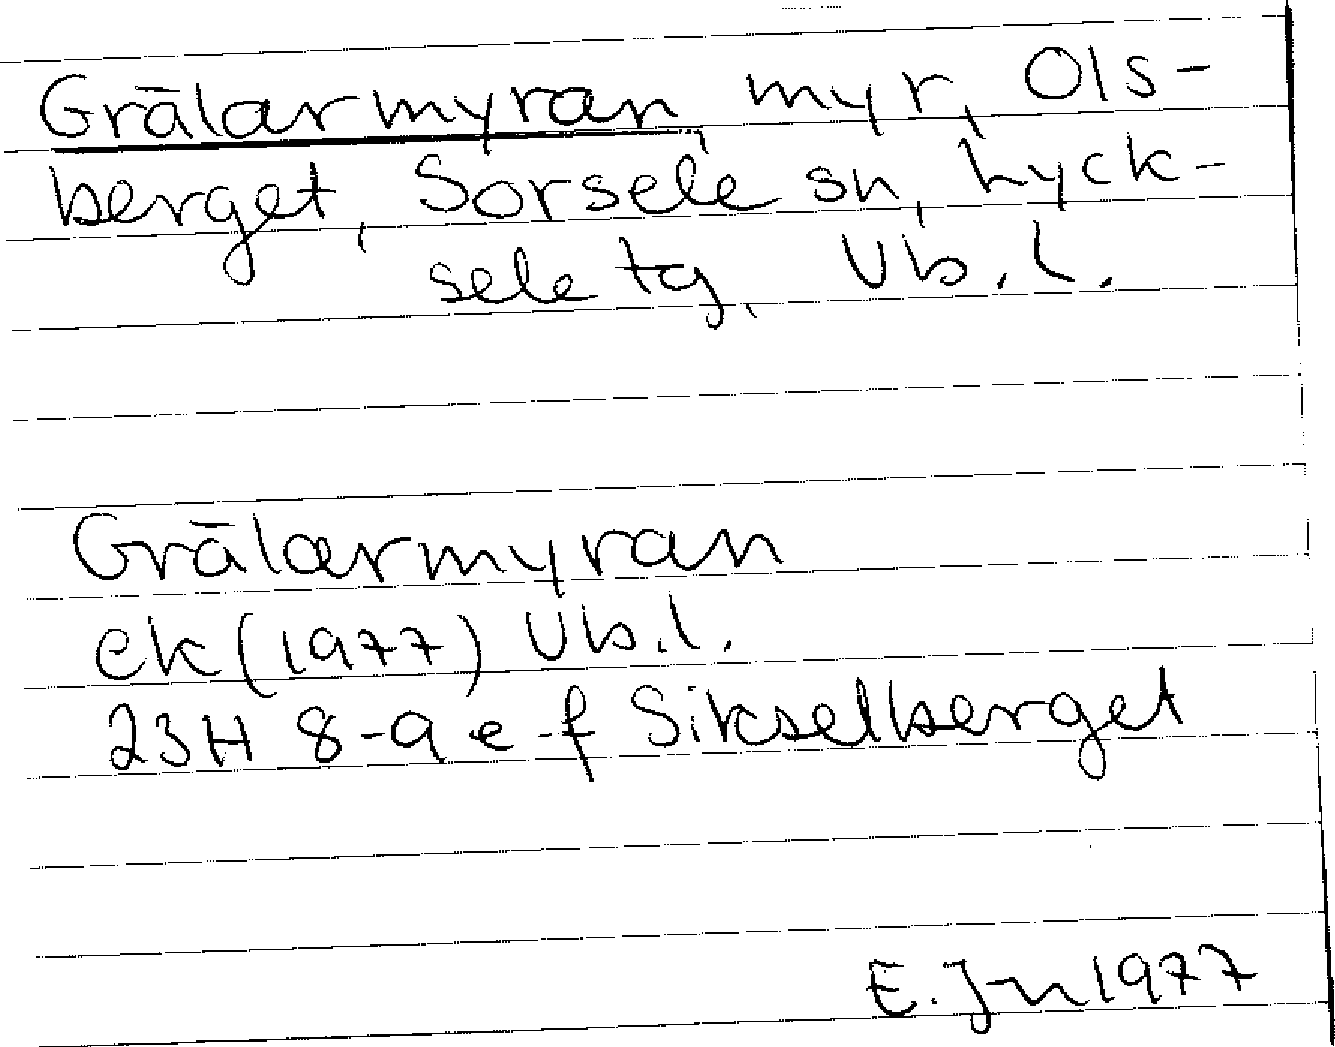 Grålarmyran myr, Ols-
berget, Sorsele sn, Lyck-
sele tg, Vb. l.
Grålarmyran
ek (1977) Vb. l.
23H 8-9 e-f Sikselberget
E. Jn 1977